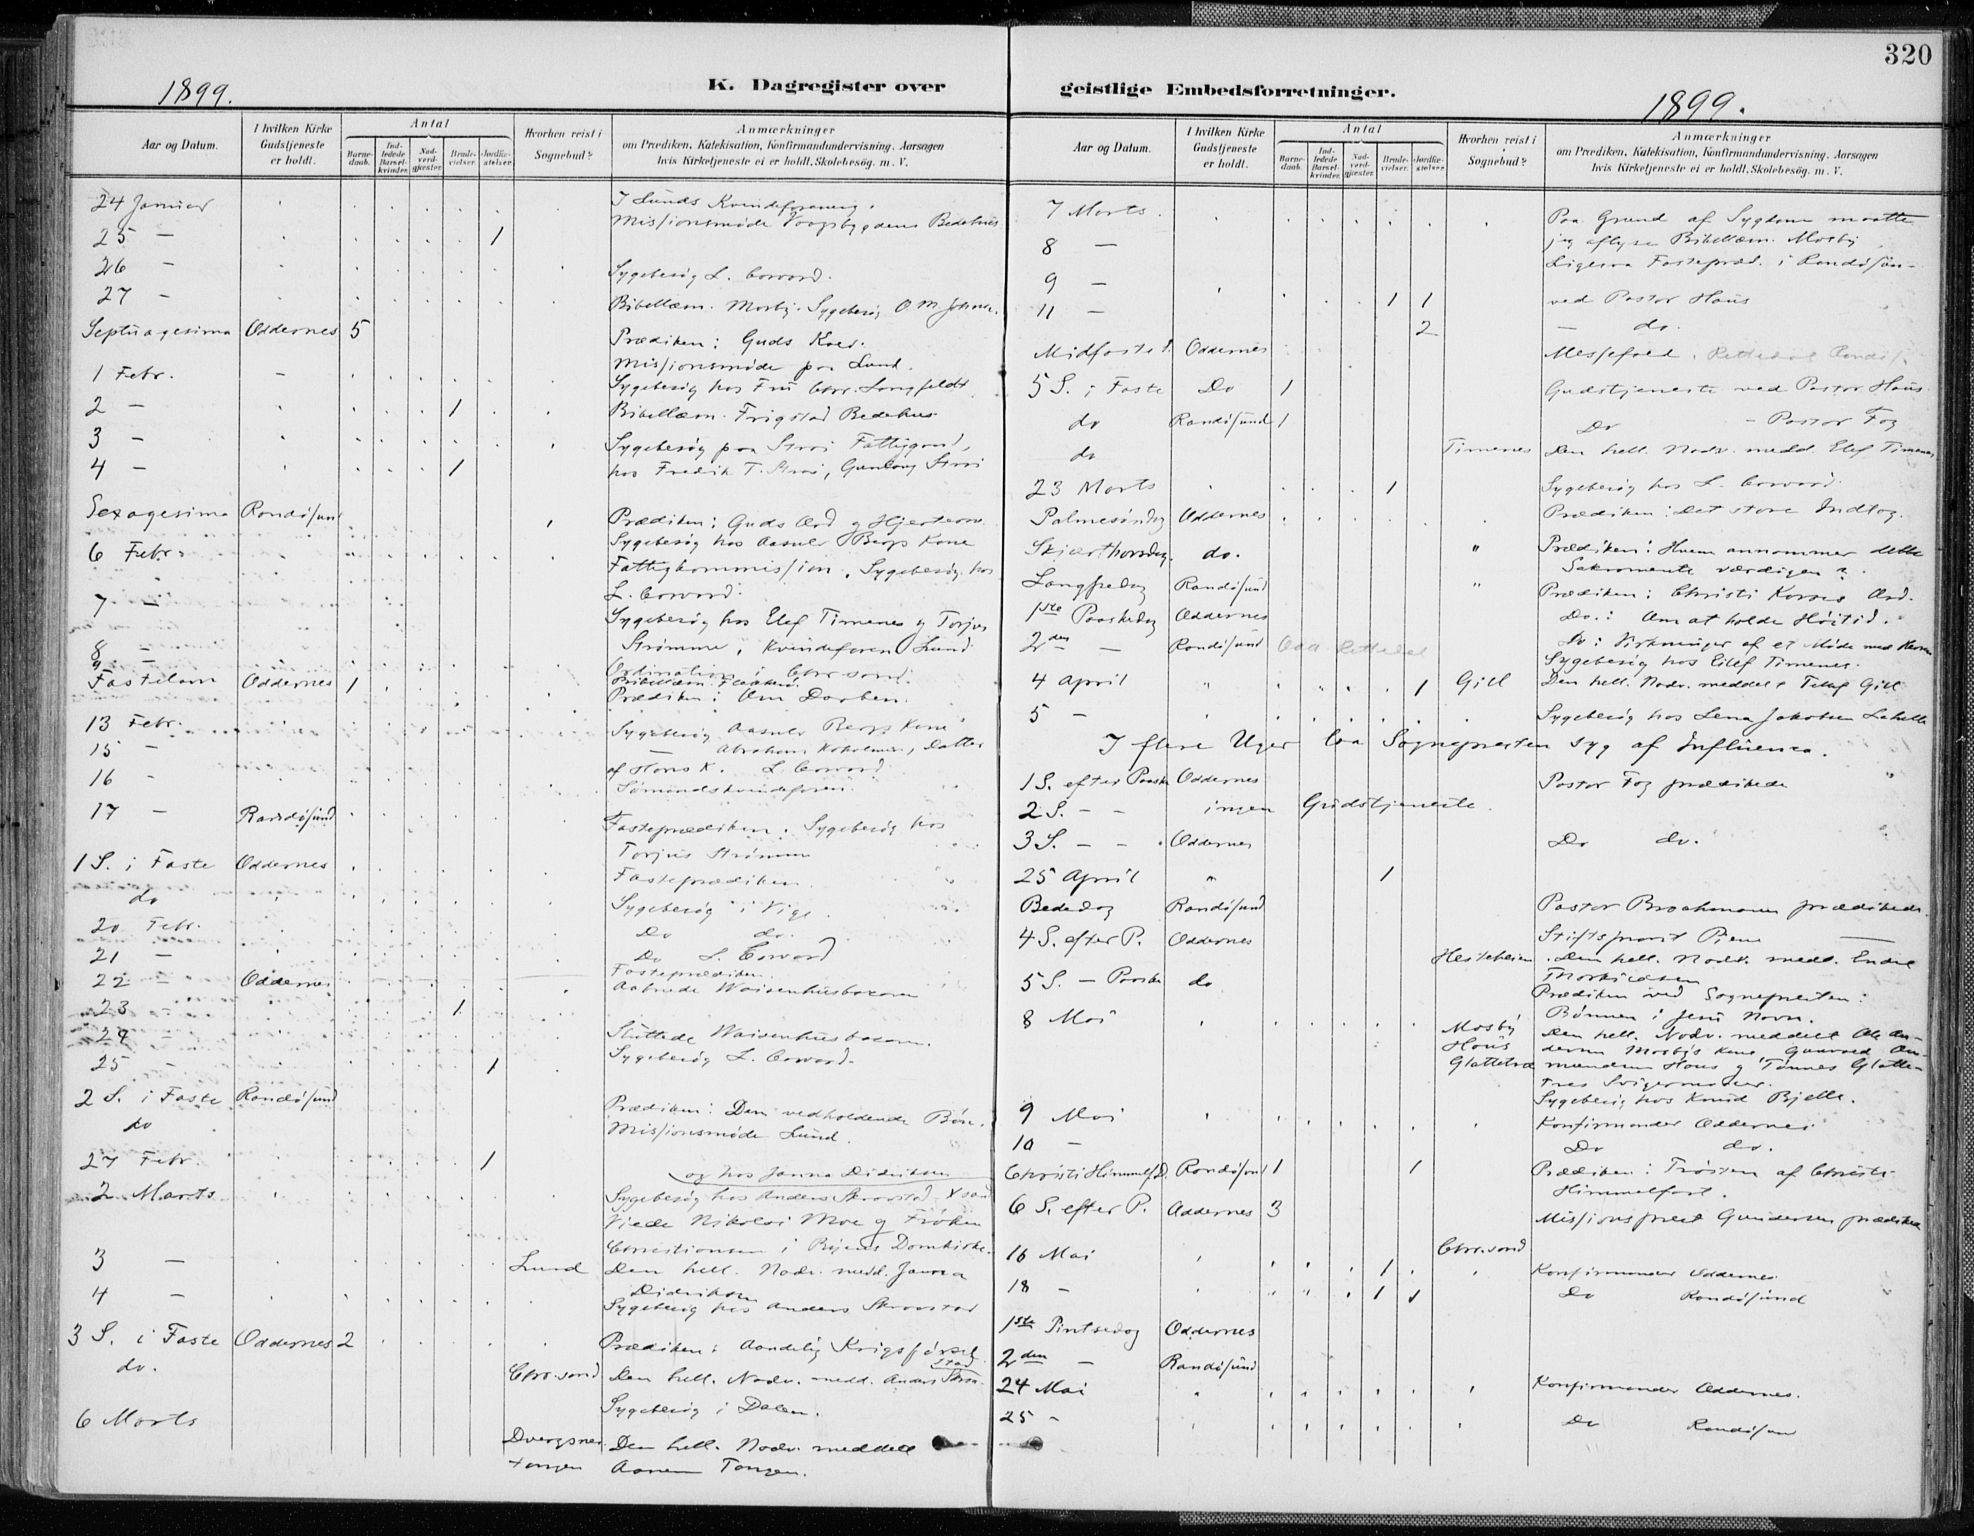 320
1899.
K. Dagregister over
Aar og Datum.
I hvilken Kirke Gudstjeneste er holdt.
Antal
Barnedaab.
Indledede Barselkvinder.
Nadverdgjæster.
Brudevielser.
Jordfæstelser.
Hvorhen reist i Sognebud?
Anmærkninger
om Prædiken, Katekisation, Konfirmandundervisning. Aarsagen
hvis Kirketjeneste ei er holdt. Skolebesøg. m. V.
24 Januar I Lunds Kvindeforening.
25 — 1 Missionsmøde Vaagsbygdens Bedehus
26 — Sygebesøg L. Corvard.
27 — Bibellæsn. Mosby. Sygebesøg O. M.
Septuagesima Oddernes 5 Prædiken: Guds
Missionsmøde paa Lund.
1 Febr. — Sygebesøg hos Fru Chr.
2 — 1 Bibellæsn. Frigstad Bedehus
3 — Sygebesøg paa Strai Fattiggaard,
4 — 1 hos Fredrik T. Strai, Gunlaug Strai
Sexagesima Randøsund Prædiken: Guds Ord og Hjerterne
6 Febr. Sygebesøg hos Aasulv Bergs Kone
Fattigkommission. Sygebesøg hos
7 — L. Corvard.
Sygebesøg hos Elef Timenes og Torjus
8 — Strømme, Kvindeforen. Lund
9 — Ordination i Chr.sand.
Bibellæsn. Flekkerø.
Fastelavn Oddernes 1 Prædiken: Om Daaben.
13 Febr. Sygebesøg Aasulv Bergs Kone
15 — — Abraham Kokolmen, Datter
af Hans K. L. Corvard
16 — Sømandskvindeforen.
17 — Randøsund Fasteprædiken. Sygebesøg hos
Torjus Strømme
1 S. i Faste Oddernes Fasteprædiken.
do Sygebesøg i Vige
20 Febr. Do do.
21 — Do L. Corvard
22 — Oddernes Fasteprædiken.
23 — 1 Aabnede Waisenhusbasaren
24 — Sluttede Waisenhusbasaren.
25 — 1 Sygebesøg L. Corvard.
2 S. i Faste Randøsund Prædiken: Den vedholdende Bøn.
do Missionsmøde Lund.
27 Febr. 1 og hos Janna Didriksen
2 Marts Sygebesøg hos Anders Skraastad
Viede Nikolai Moe og Frøken
Christiansen i Byens Domkirke.
3 — Lund Den hell. Nadv. medd. Janna
Didriksen
4 — Sygebesøg hos Anders Skraastad
3 S. i Faste Oddernes 2 Prædiken: Aandelig Krigsførsel
do. Chr.sand Den hell. Nadv. medd. Anders Skraastad
Sygebesøg i Dalen.
6 Marts Dvergsnes Den hell. Nadv. meddelt
Tangen Tangen.
geistlige Embedsforretninger.
1899.
Aar og Datum.
I hvilken Kirke Gudstjeneste er holdt.
Antal
Barnedaab.
Indledede Barselkvinder.
Nadverdgjæster.
Brudevielser.
Jordfæstelser.
Hvorhen reist i Sognebud?
Anmærkninger
om Prædiken, Katekisation, Konfirmandundervisning. Aarsagen
hvis Kirketjeneste ei er holdt. Skolebesøg. m. V.
7 Marts. Paa Grund af Sygdom maatte
8 — jeg aflyse Bibellæsn. Mosby
9 — Ligesaa Fastepræd. i Randøsun-
11 — 1 1 ved Pastor Haus
2 — do.
Midfaste Oddernes Messefald.
5 S. i Faste Do 1 Gudstjeneste ved Pastor Haus
do Randøsund 1 Do — Pastor Fog
do Timenes Den hell. Nadv. medd. Elef Timenes
23 Marts 1 Sygebesøg hos L. Corvard.
Palmesøndag Oddernes Prædiken: Det store Indtog.
Skjærthorsdag. do. " Prædiken: Hvem annammer dette
Sakramente værdigen?
Langfredag Randøsund " Prædiken: Christi Korses Ord.
1ste Paaskedag Oddernes Do.: Om at holde Høitid.
2den — Randøsund Do: Virkninger af et Møde med Herren
Sygebesøg hos Eilef Timenes.
4 April " 1 Gill Den hell. Nadv. meddelt Gill
5 — Sygebesøg hos Lena Jakobsen
I flere Uger laa Sognepresten syg af Influenza.
1 S. efter Paaske Oddernes Pastor Fog prædikede
2 S. — — ingen Gudstjeneste.
3 S. — — Oddernes Do do.
25 April " 1
Bededag Randøsund Pastor Brochmann prædikede.
4 S. efter P. Oddernes Stiftsprovst —
Hesteheien Den hell. Nadv. medd. Endre
Thorkildsen
5 S. — Paaske do Prædiken ved Sognepresten:
Bønnen i Jesu Navn.
8 Mai Mosby Den hell. Nadv. meddelt Ole An-
Haus dersen Mosbys Kone, Gunvald
Glattetræ Haus og Tønnes Glatte-
træs Svigermoder.
Sygebesøg hos Knud Bjelle.
9 Mai Konfirmander Oddernes
10 — Do do.
Christi Himmelf.D. Randøsund 1 1 Prædiken: Trøsten af Christi
Himmelfart.
6 S. efter P. Oddernes 3 Missionsprest Gundersen prædiked
16 Mai 1 Chr.sand
Konfirmander Oddernes.
18 — 1 1 Do Randøsund
1ste Pintsedag Oddernes
2den — Randøsund
24 Mai Konfirmander Oddernes.
25 — Do Randøsun